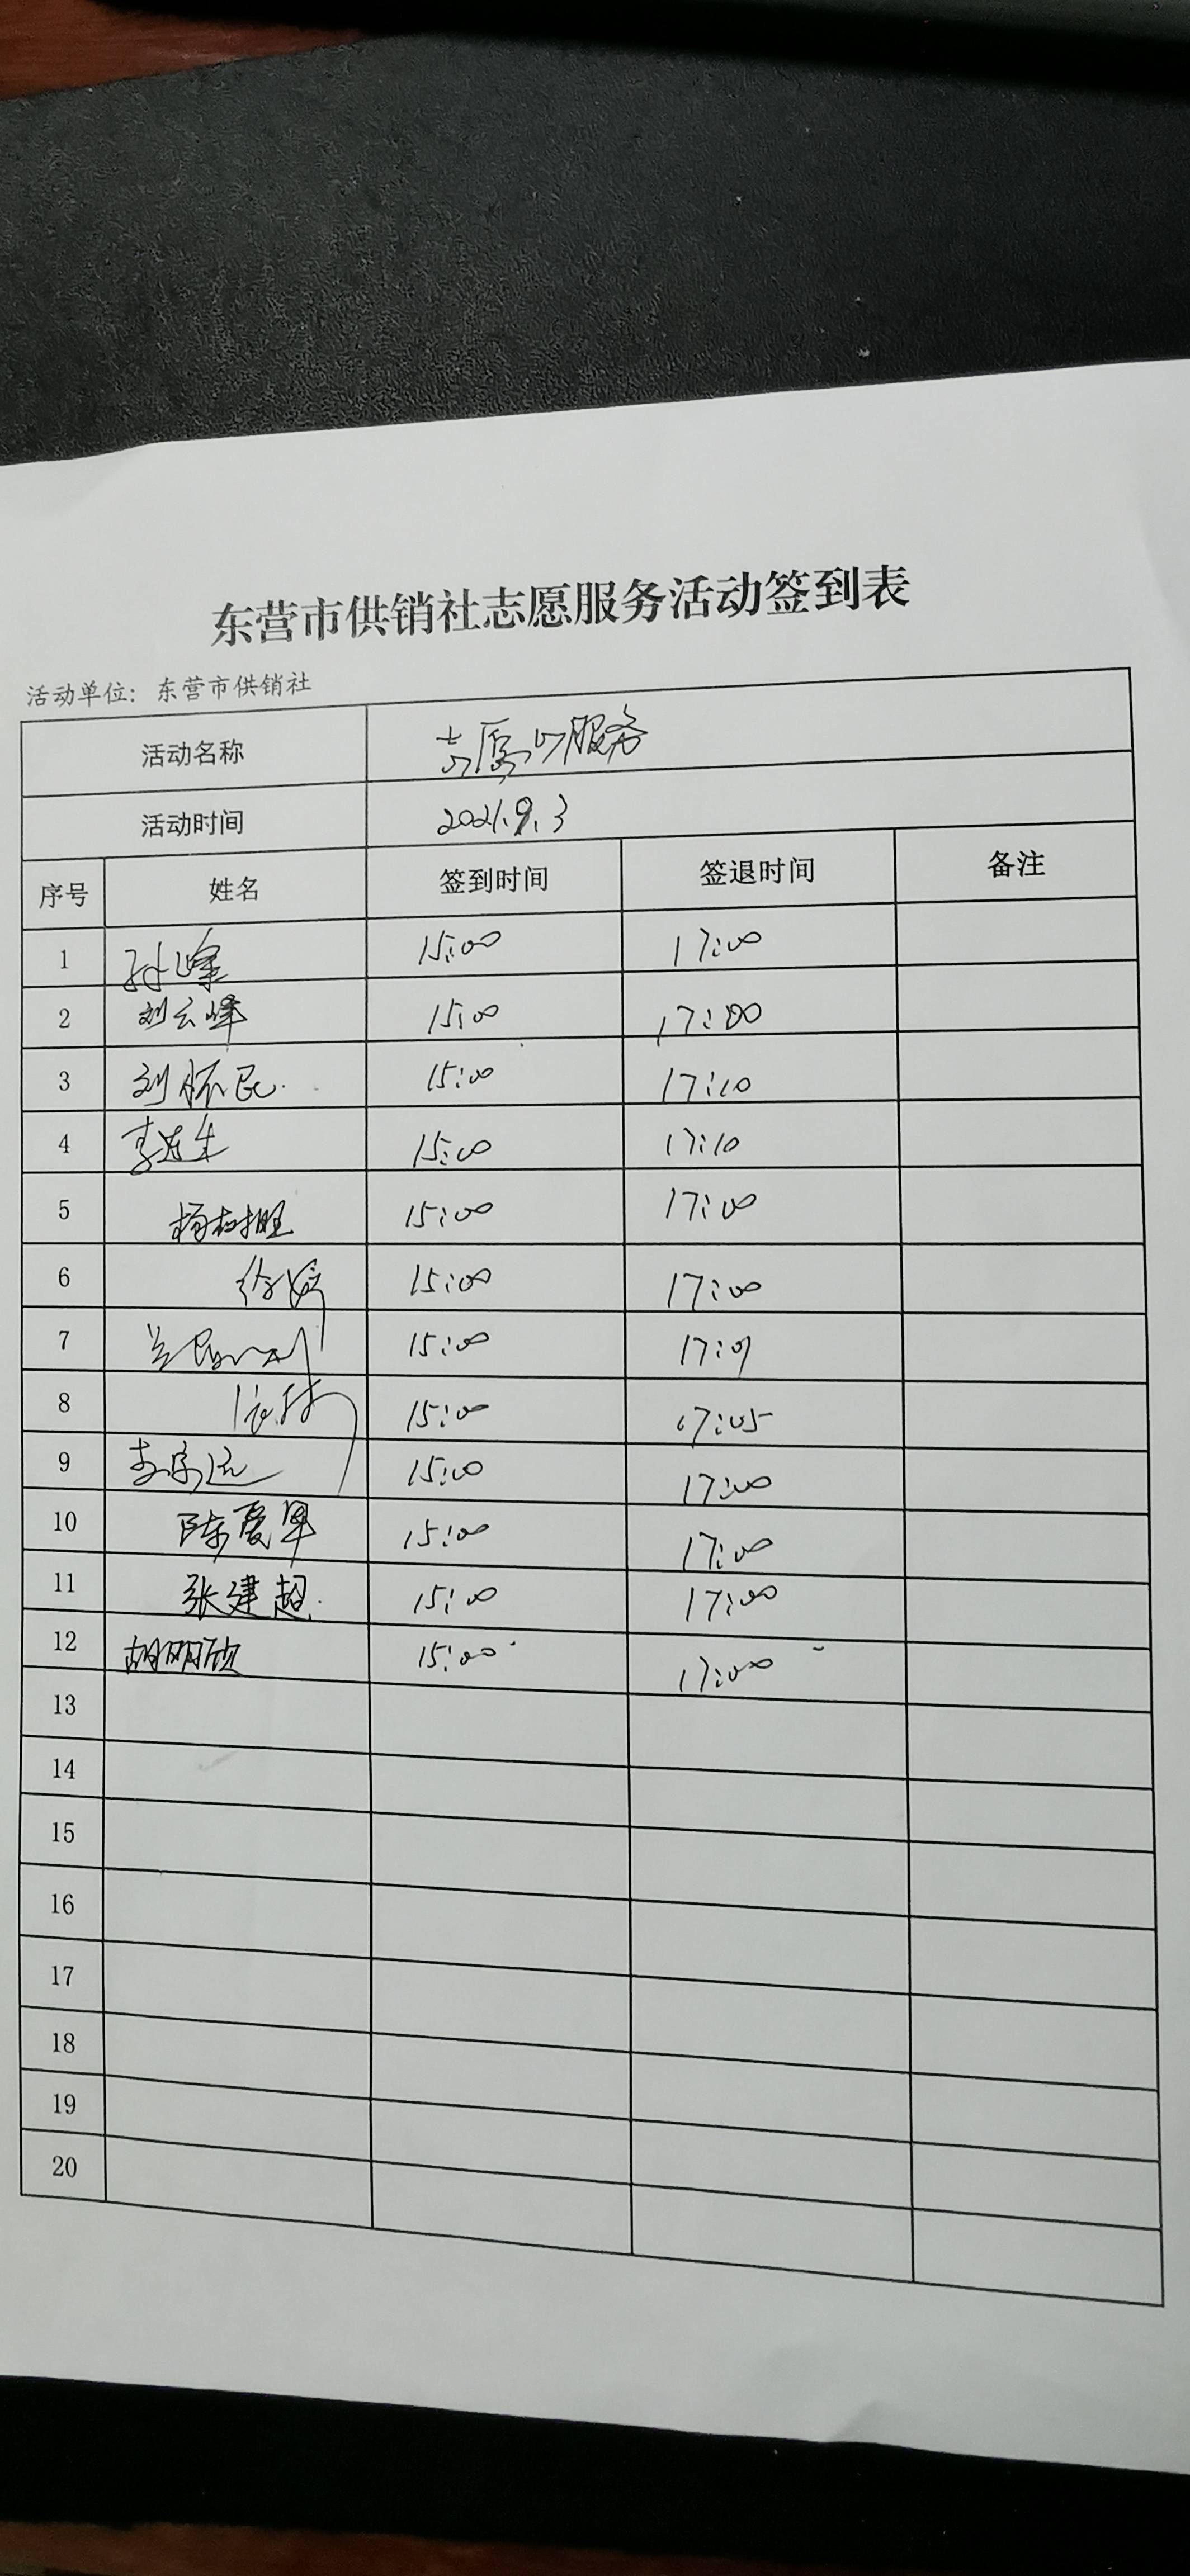 东营市供销社志愿服务活动签到表
活动单位：东营市供销社
活动名称 志愿 服务
活动时间 2021.9.3
序号 姓名 签到时间 签退时间 备注
1 孙峰 15:00 17:00
2 刘云峰 15:00 17:00
3 刘怀民 15:00 17:10
4 李 15:00 17:10
5 杨树旺 15:00 17:00
6 徐 15:00 17:00
7 15:00
8 15:00 17:05
9 李宗远 15:00 17:00
10 陈爱军 15:00 17:00
11 张建超 15:00 17:00
12 胡明欣 15:00 17:00
13
14
15
16
17
18
19
20